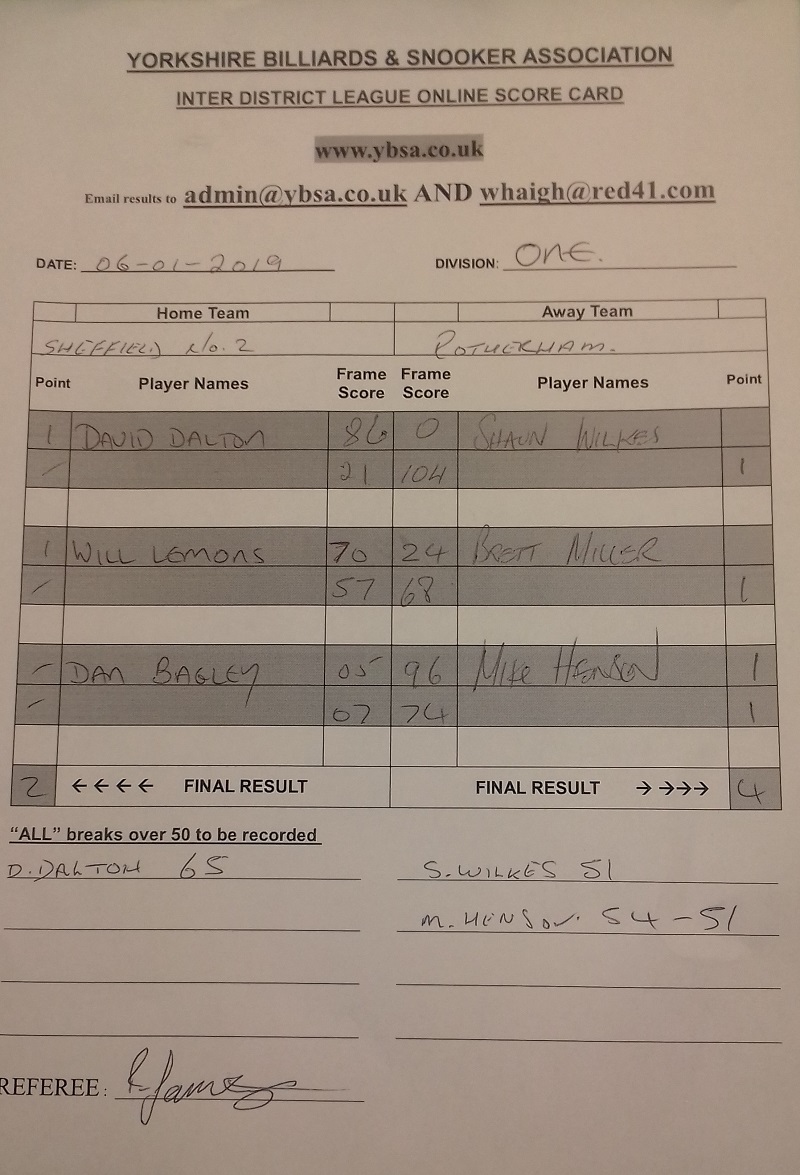 YORKSHIRE BILLIARDS & SNOOKER ASSOCIATION
INTER DISTRICT LEAGUE ONLINE SCORE CARD
www.ybsa.co.uk
Email results to admin@ybsa.co.uk AND whaigh@red41.com
DATE: 06-01-2019 DIVISION: ONE.
Home Team Away Team
SHEFFIELD No. 2 ROTHERHAM.
Point Player Names Frame Score Frame Score Player Names Point
1 DAVID DALTON 86 0 SHAUN WILKES
- 21 104 1
1 WILL LEMONS 70 24 BRETT MILLER
- 57 68 1
- DAN BAGLEY 05 96 MIKE HENSON 1
- 07 74 1
2 ←←←← FINAL RESULT FINAL RESULT →→→→ 4
“ALL” breaks over 50 to be recorded
D. DALTON 65 S. WILKES 51
M. HENSON. 54 - 51
REFEREE: